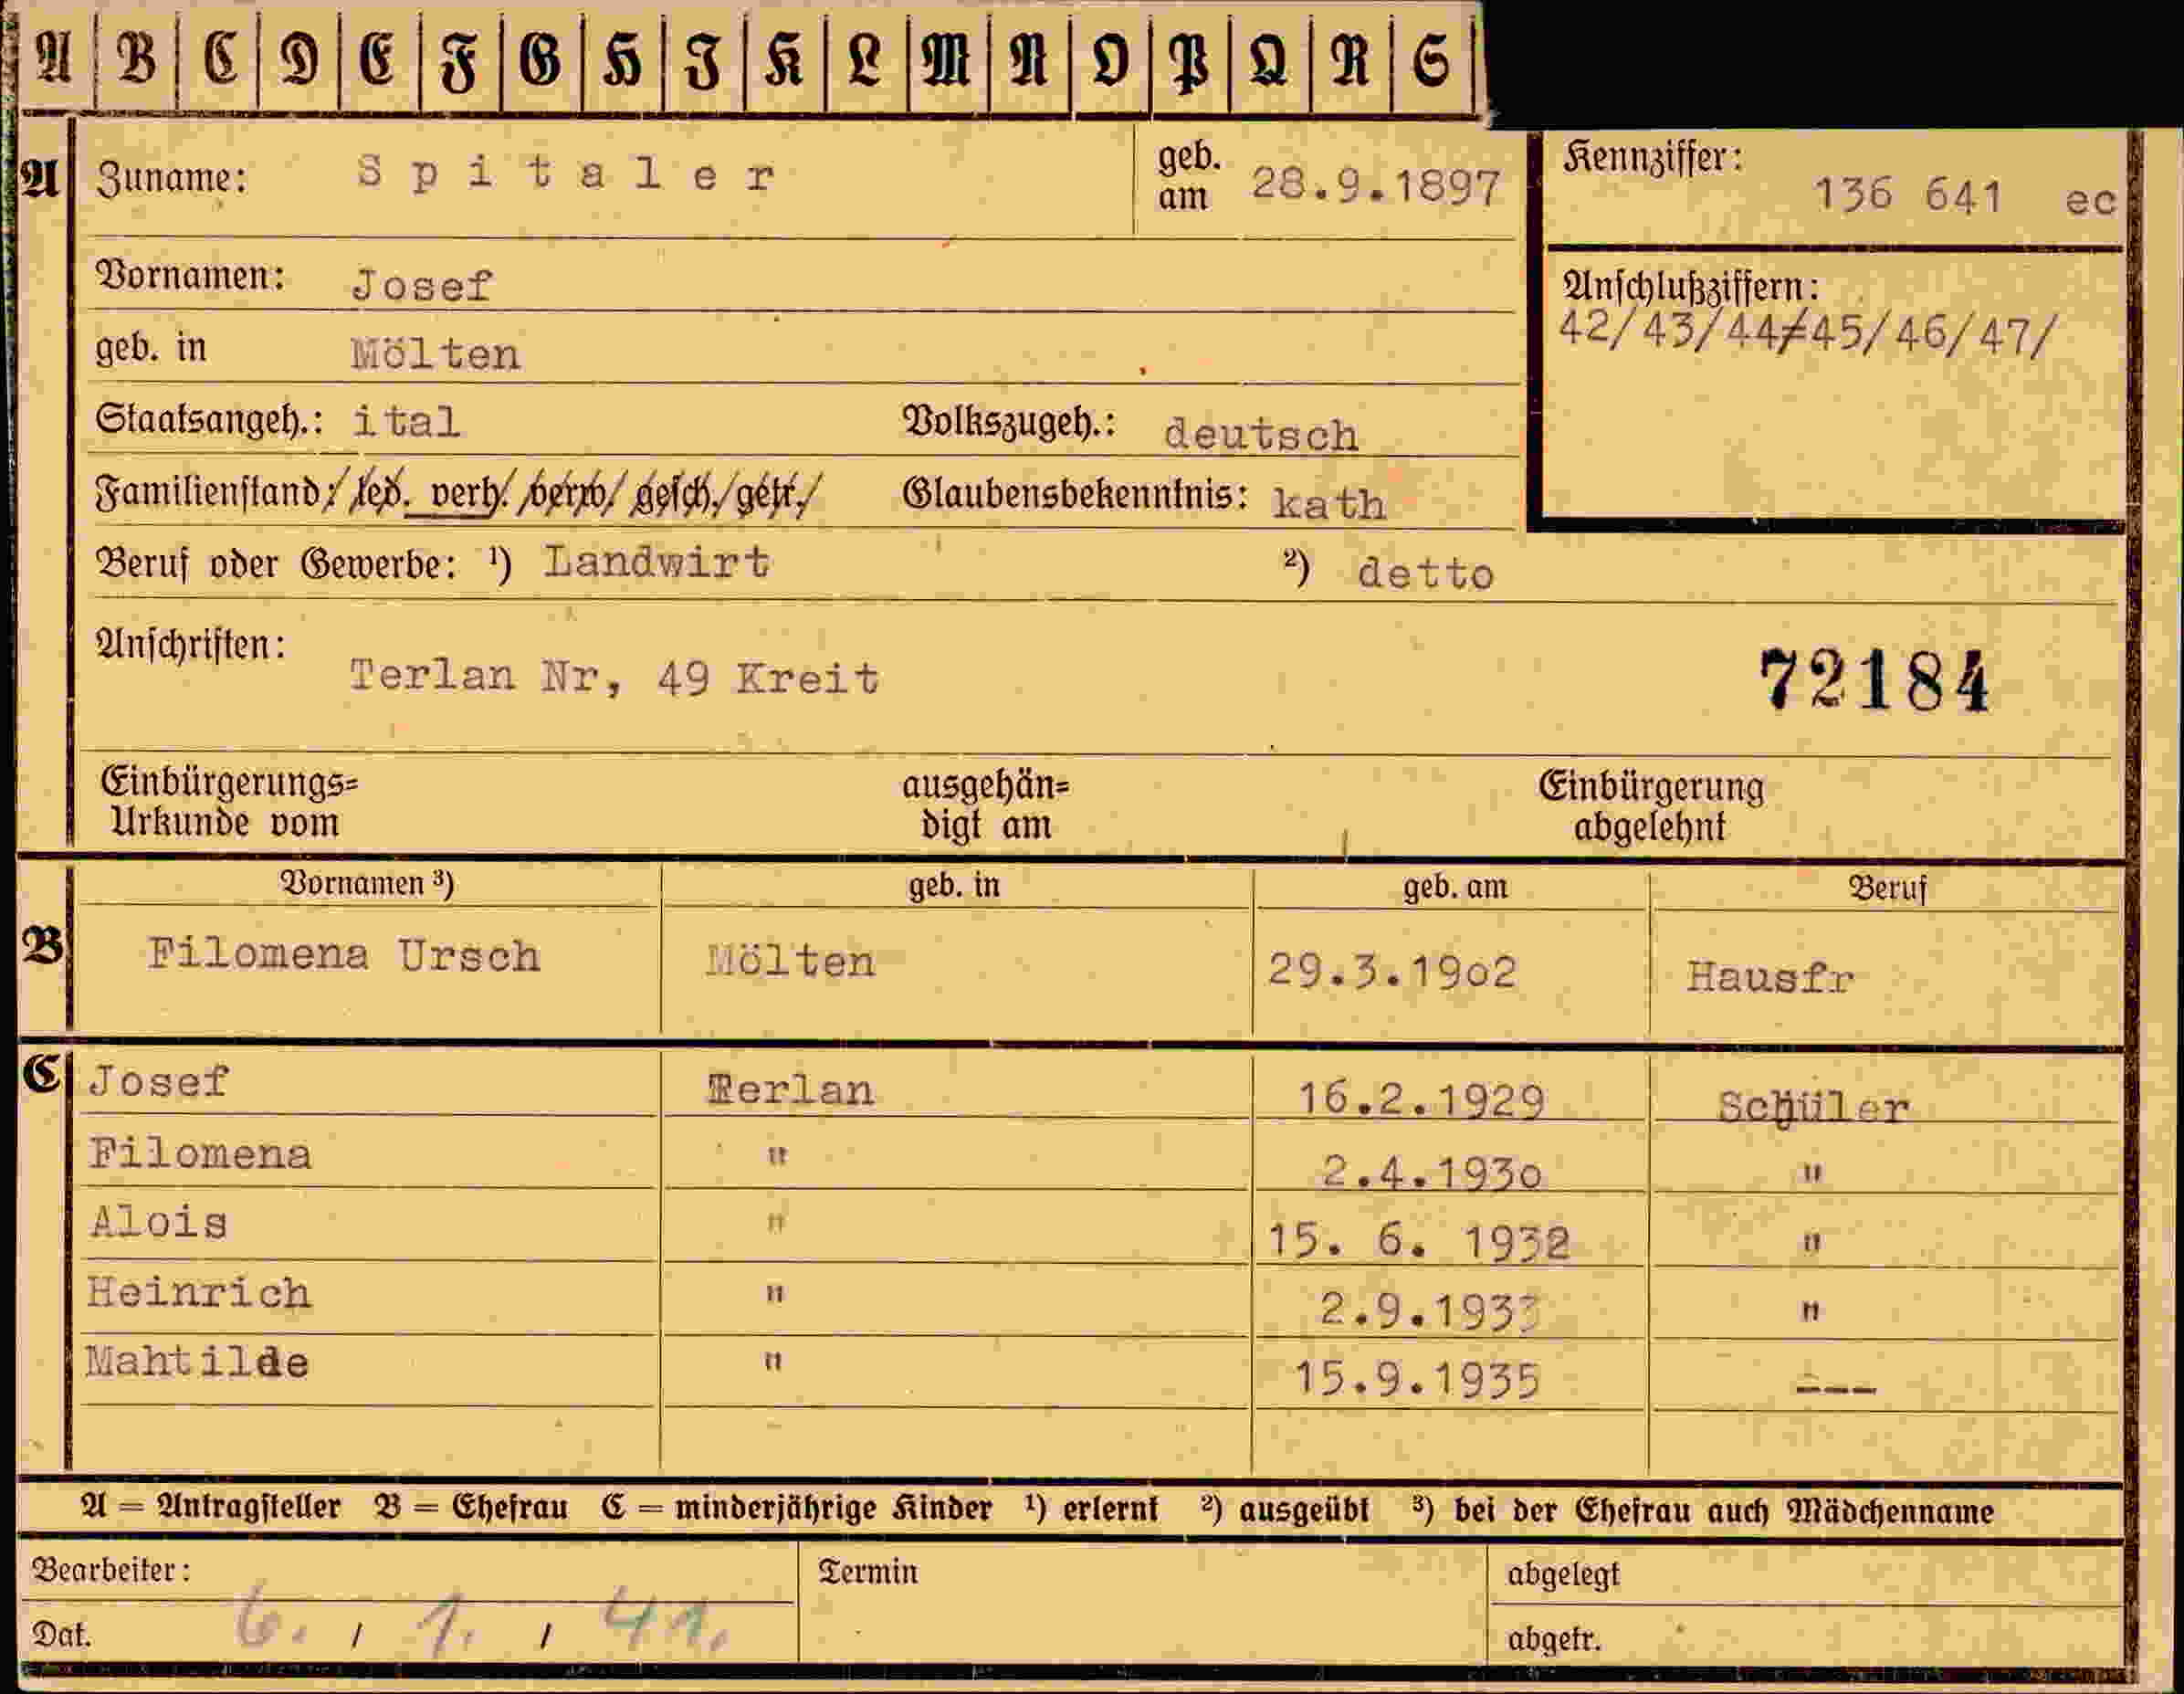 A B C D E F G H I K L M N O P Q R S
A Zuname: Spitaler geb. am 28.9.1897 Kennziffer: 136 641 ec
Vornamen: Josef
Anschlußziffern:
42/43/44/45/46/47/
geb. in Mölten
Staatsangeh.: ital Volkszugeh.: deutsch
Familienstand: led. verh. verw. gesch. getr. Glaubensbekenntnis: kath
Beruf oder Gewerbe: ¹) Landwirt ²) detto
Anschriften:
Terlan Nr, 49 Kreit 72184
Einbürgerungs= ausgehän= Einbürgerung
Urkunde vom digt am abgelehnt
Vornamen ³) geb. in geb. am Beruf
B Filomena Ursch Mölten 29.3.19o2 Hausfr
C Josef Terlan 16.2.1929 Schüler
Filomena " 2.4.193o "
Alois " 15. 6. 1932 "
Heinrich " 2.9.1933 "
Mahtilde " 15.9.1935 ---
A = Antragsteller B = Ehefrau C = minderjährige Kinder ¹) erlernt ²) ausgeübt ³) bei der Ehefrau auch Mädchenname
Bearbeiter: Termin abgelegt
Dat. 6. / 1. / 41. abgetr.